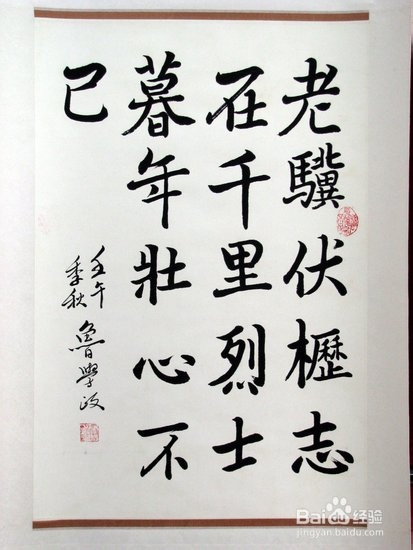 老驥伏櫪志
在千里烈士
暮年壯心不
已
壬午
季秋
魯學政
Baidu经验
jingyan.baidu.com